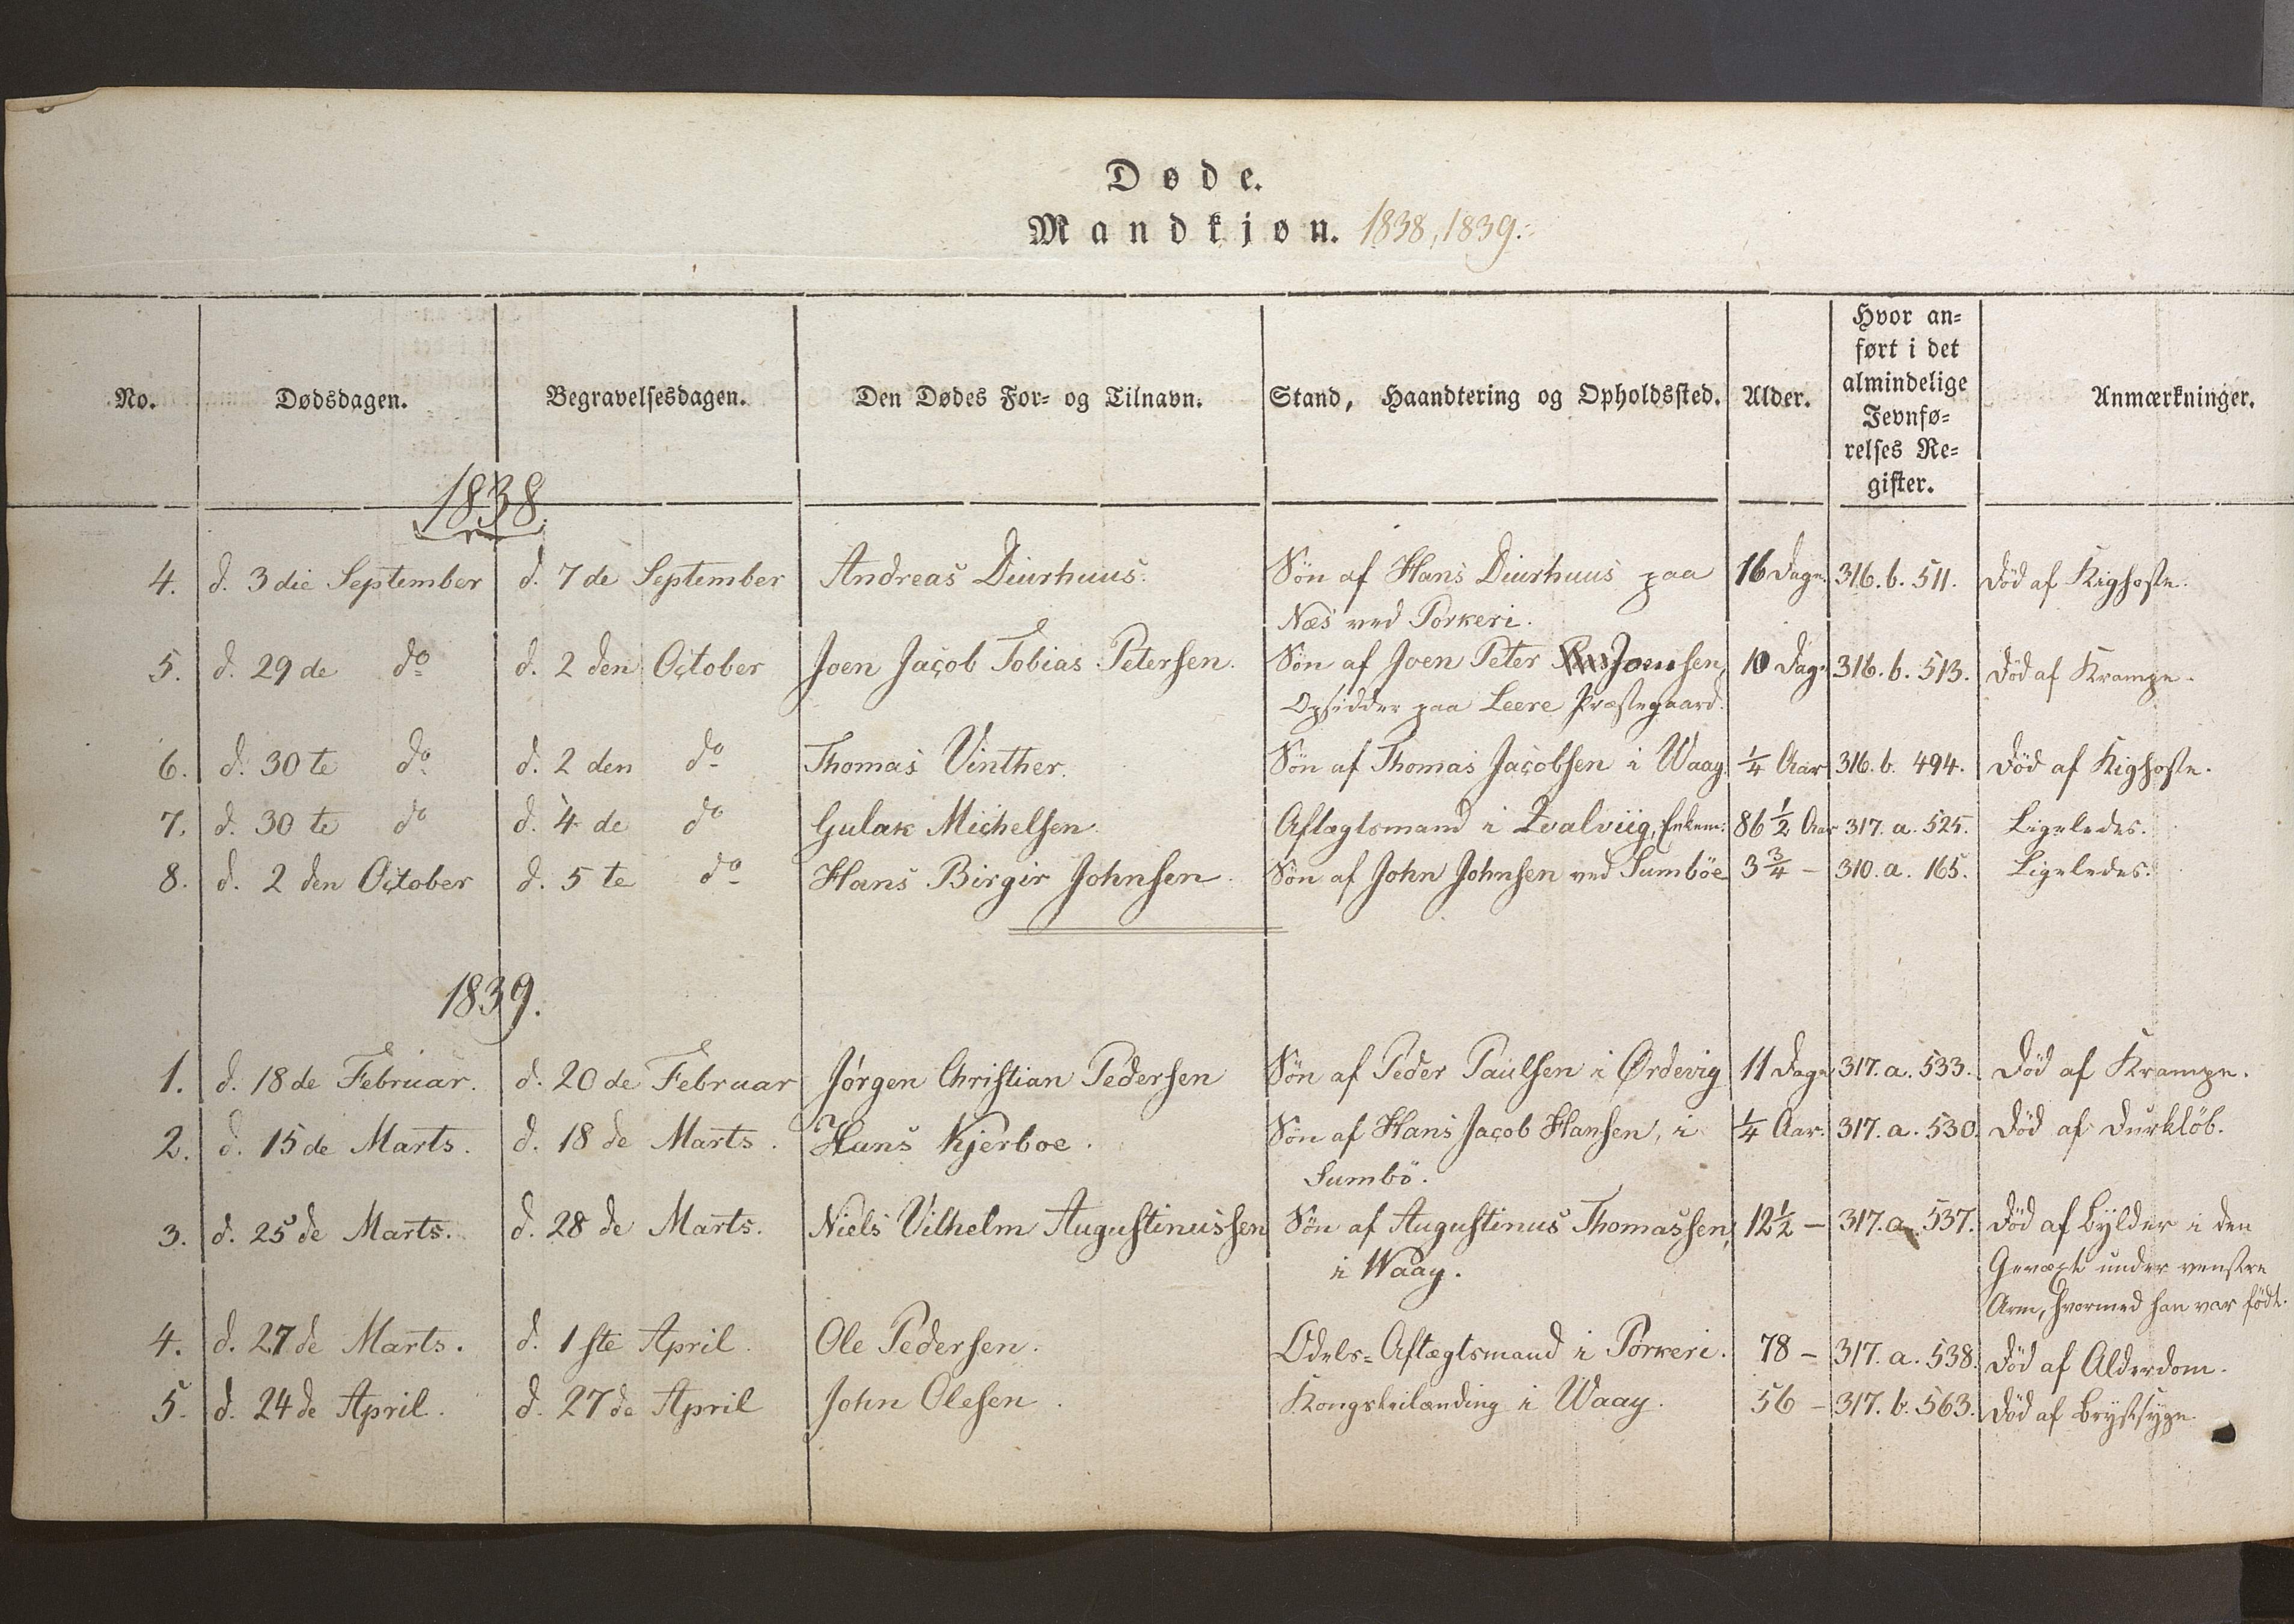 Døde.
Mandkjøn. 1838, 1839.
No. Dødsdagen. Begravelsesdagen. Den Dødes For- og Tilnavn. Stand, Haandtering og Opholdssted. Alder. Hvor an-
ført i det
almindelige
Jevnfø-
relses Re-
gister. Anmærkninger.
1838.
4. d. 3die September d. 7de September Andreas Diurhuus. Søn af Hans Diurhuus paa 16 Dage. 316. b. 511. Död af Kighoste.
Næs ved Porkeri.
5. d. 29de do d. 2den October Joen Jacob Tobias Petersen. Søn af Joen Peter Joensen, 10 Dage 316. b. 513. Död af Krampe.
Opsidder paa Leere Præstegaard.
6. d. 30te do d. 2den do Thomas Vinther. Søn af Thomas Jacobsen i Waag. 1/4 Aar 316. b. 494. Död af Kighoste.
7. d. 30te do d. 4de do Gulak Michelsen. Aftægtsmand i Qvalviig, Enkem: 86 1/2 Aar 317. a. 525. Ligeledes.
8. d. 2den October d. 5te do Hans Birgir Johnsen. Søn af John Johnsen ved Sumböe 3 3/4 - 310. a. 165. Ligeledes.
1839.
1. d. 18de Februar. d. 20de Februar Jørgen Christian Pedersen Søn af Peder Paulsen i Ørdevig 11 Dage 317. a. 533. Död af Krampe.
2. d. 15de Marts. d. 18de Marts. Hans Kjerboe. Søn af Hans Jacob Hansen, i 1/4 Aar. 317. a. 530. Död af Durklöb.
Sumbö.
3. d. 25de Marts. d. 28de Marts. Niels Vilhelm Augustinussen Søn af Augustinus Thomassen, 12 1/2 - 317. a. 537. Död af Bylder i den
i Waag. Gevæxt under venstre
Arm, hvormed han var födt.
4. d. 27de Marts. d. 1ste April. Ole Pedersen. Odels-Aftægtsmand i Porkeri. 78 - 317. a. 538. Död af Alderdom.
5. d. 24de April. d. 27de April John Olesen. Kongsleilænding i Waag. 56 - 317. b. 563. Död af Brystsyge.